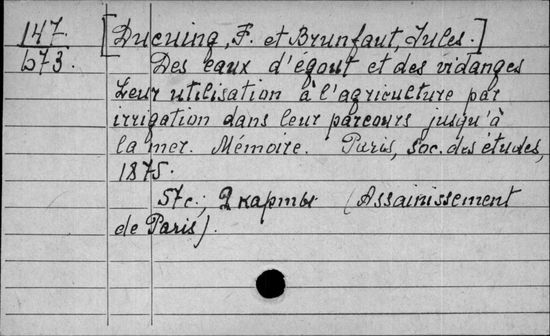 147 [Ducuing, F. et Brunfaut, Jules.]
573. Des eaux d'égout et des vidanges
Leur utilisation à l'agriculture par
irrigation dans leur parcours jusqu'à
la mer. Mémoire. Paris, soc. des études,
1875.
57c.; 2 карты (Assainissement
de Paris).